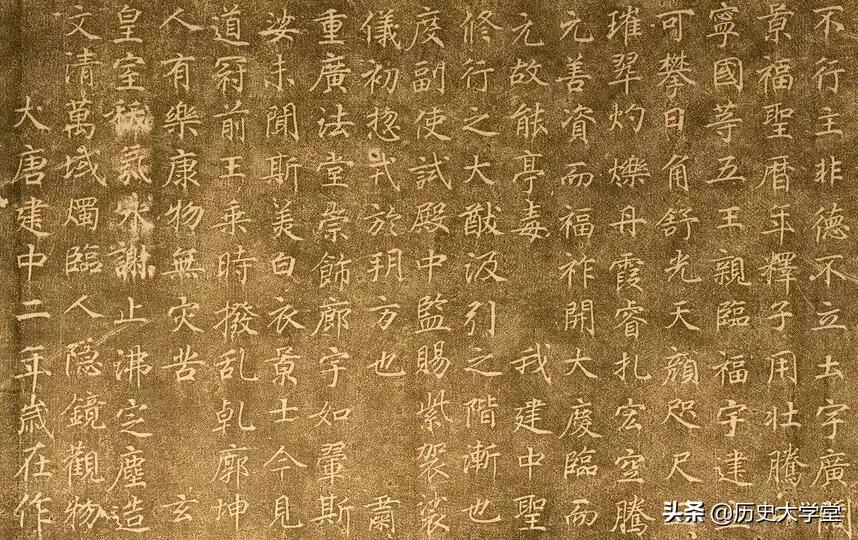 不行主非德不立土宇廣闊
景福聖曆年釋子用壯騰
寧國䓁五王親臨福宇建
可攀日角舒光天顏咫尺
璀翠灼爍丹霞睿扎宏空騰
元善資而福祚開大慶臨而
元故能亭毒 我建中聖
修行之大猷汲引之階漸也
度副使試殿中監賜紫袈裟
儀初惣戎於朔方也 肅
重廣法堂崇飾廊宇如翬斯
娑未聞斯美白衣景士今見
道冠前王乘時撥乱乹廓坤
人有樂康物無灾苦 玄
皇室祅氛永謝止沸定塵造
文清萬域燭臨人隱鏡觀物
大唐建中二年歲在作
头条 @历史大学堂